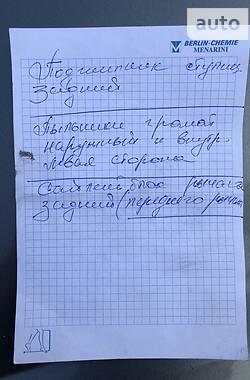 auto
BERLIN-CHEMIE
MENARINI
Подшипник ступиц
Задний
Пыльники гранат
наружный и внутр
левая сторона
Сайлентблок рычага
задний (переднего рычага